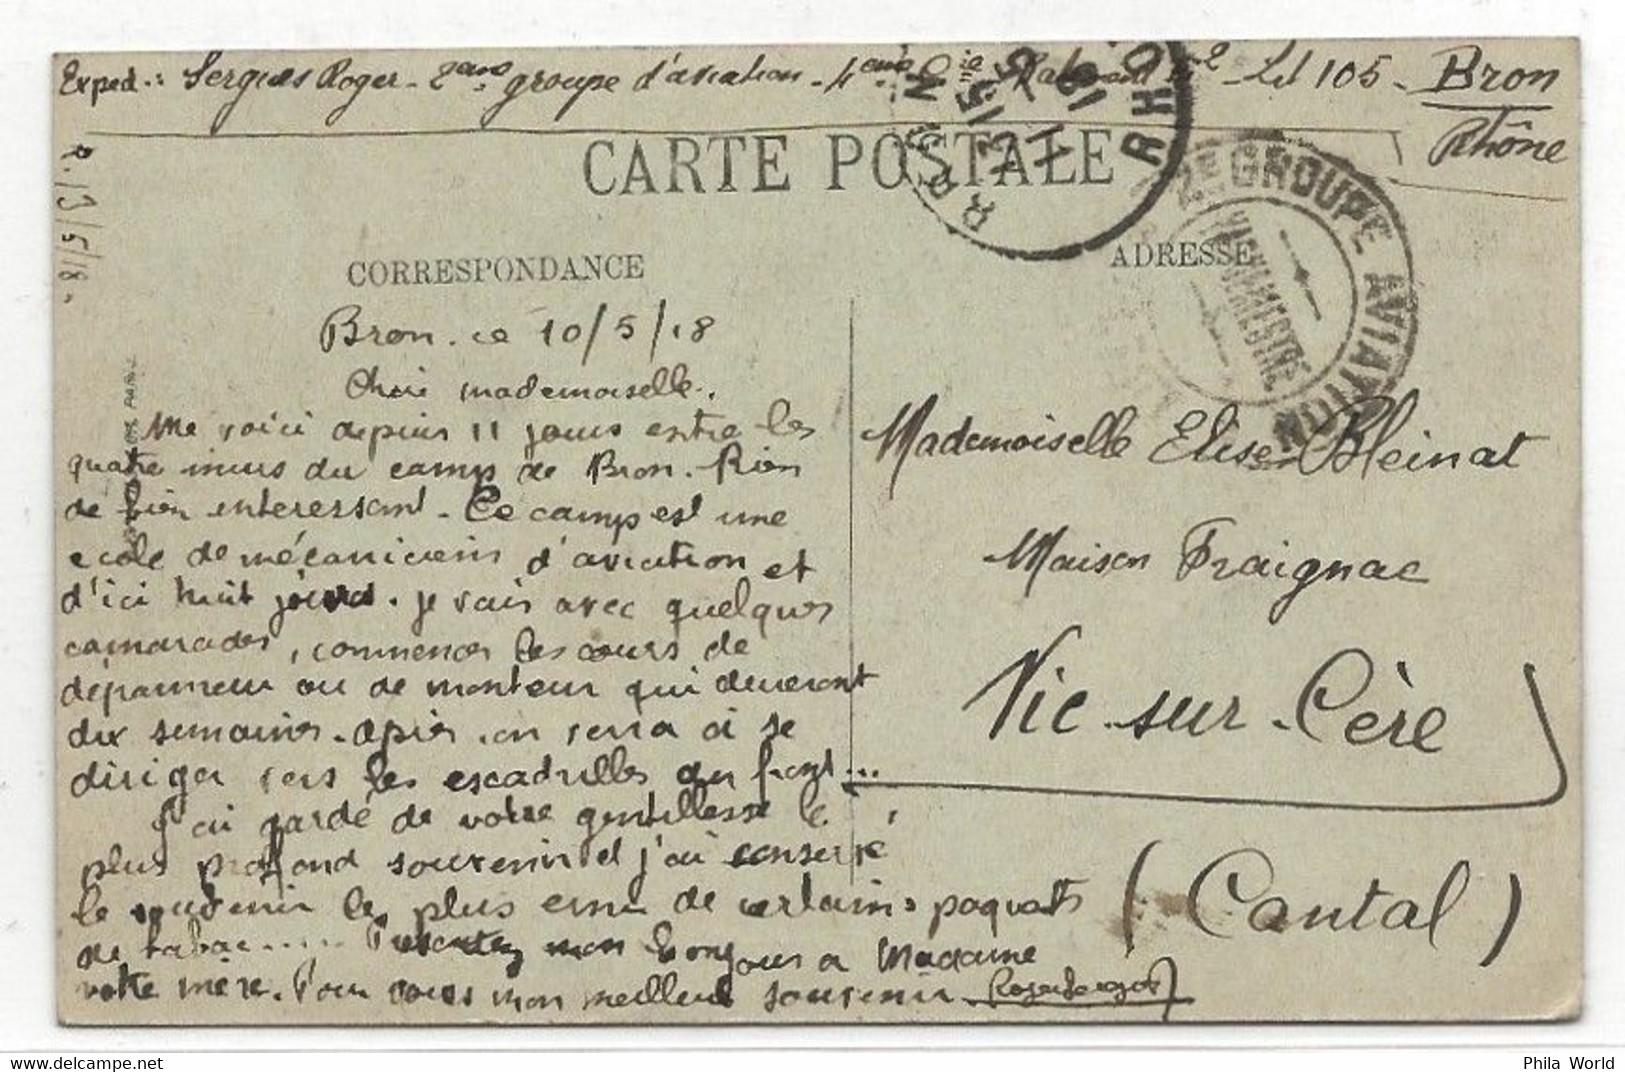 Exped.: Sergues Roger - 2ème groupe d'aviation - 4ème Cie - Lit 105 - Bron
Rhône
R. 13/5/18.
CARTE POSTALE
BRON
RHO
2e GROUPE AVIATION
VAGUEMESTRE
CORRESPONDANCE
ADRESSE
Bron. ce 10/5/18
Chère mademoiselle.
Me voici depuis 11 jours entre les
quatre murs du camp de Bron. Rien
de bien interessant. Ce camp est une
ecole de mécaniciens d'aviation et
d'ici huit jours. je vais avec quelques
camarades, commencer les cours de
dépanneur ou de monteur qui dureront
dix semaines. après, on sera à se
diriger vers les escadrilles du front...
J'ai gardé de votre gentillesse le
plus profond souvenir et j'ai conservé
le souvenir le plus emu de certains paquets
de tabac...... Presentez mon bonjour a Madame
votre mère. Pour vous mon meilleur souvenir
Mademoiselle Elise Bleinat
Maison Fraignac
Vic-sur-Cère
(Cantal)
Phila World